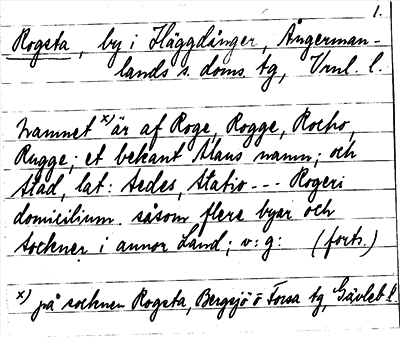 1.
Rogsta, by i Häggdånger, Ångerman-
lands s. doms. tg, Vrnl. l.
Namnet x) är af Roge, Rogge, Rocho,
Rugge; et bekant Mans namn; och
stad, lat: sedes, statio --- Rogeri
domicilium. såsom flere byar och
socknar i annor Land; v: g: (forts.)
x) på socknen Rogsta, Bergsjö o Forsa tg, Gävleb l.